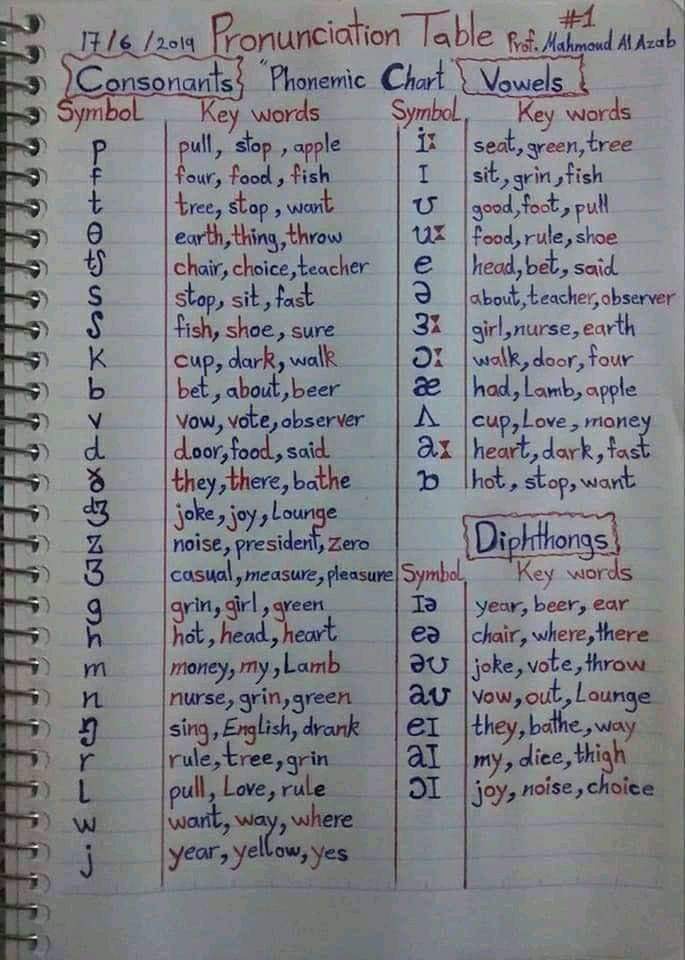 #1
17/6/2019 Pronunciation Table Prof. Mahmoud Al Azab
Consonants "Phonemic Chart" Vowels
Symbol Key words Symbol Key words
p pull, stop, apple iː seat, green, tree
f four, food, fish I sit, grin, fish
t tree, stop, want ʊ good, foot, pull
θ earth, thing, throw uː food, rule, shoe
tʃ chair, choice, teacher e head, bet, said
s stop, sit, fast ə about, teacher, observer
ʃ fish, shoe, sure ɜː girl, nurse, earth
k cup, dark, walk ɔː walk, door, four
b bet, about, beer æ had, Lamb, apple
v vow, vote, observer ʌ cup, Love, money
d door, food, said aː heart, dark, fast
ð they, there, bathe ɒ hot, stop, want
dʒ joke, joy, Lounge
z noise, president, zero Diphthongs
ʒ casual, measure, pleasure Symbol Key words
g grin, girl, green Iə year, beer, ear
h hot, head, heart eə chair, where, there
m money, my, Lamb əʊ joke, vote, throw
n nurse, grin, green aʊ vow, out, Lounge
ŋ sing, English, drank eI they, bathe, way
r rule, tree, grin aI my, dice, thigh
L pull, Love, rule ɔI joy, noise, choice
w want, way, where
j year, yellow, yes